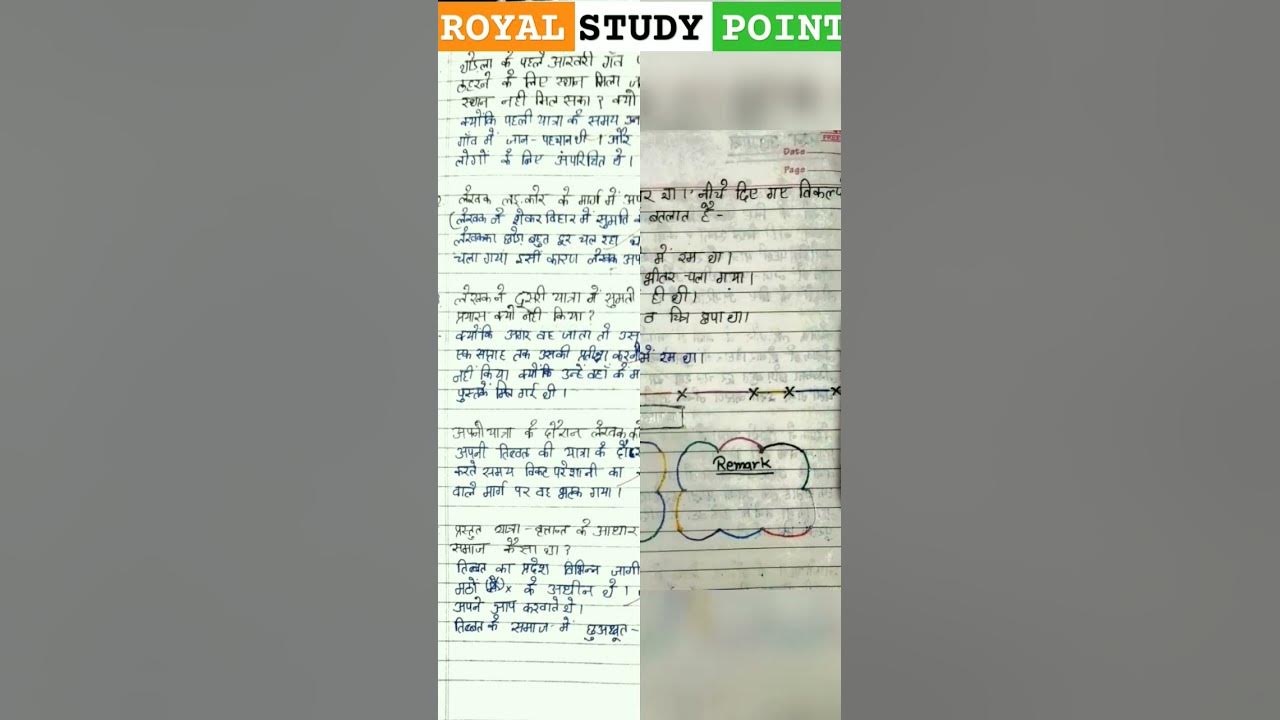 ROYAL STUDY POINT
थोङ्ला के पहले आखरी गाँव
ठहरने के लिए स्थान मिला
स्थान नही मिल सका? क्यो
क्योकि पहली यात्रा के समय उन
गाँव में जान-पहचान थी। और
लोगों के लिए अपरिचित थे।
लेखक लङ्.कोर के मार्ग में अप
(लेखक ने शेकर विहार मे सुमति
लेखकका घोड़ा बहुत दूर चल रहा
चला गया इसी कारण लेखक अप
लेखक ने दूसरी यात्रा में सुमती
प्रयास क्यो नही किया?
क्योंकि अगर वह जाता तो उस
एक सप्ताह तक उसकी प्रतीक्षा करनी
नहीं किया क्योंकि उन्हें वहाँ के म
पुस्तकें मिल गई थी।
अपनी यात्रा के दौरान लेखक को
अपनी तिब्बत की यात्रा के दौर
करते समय विकट परेशानी का
वाले मार्ग पर वह भटक गया।
प्रस्तुत यात्रा-वृत्तान्त के आधार
समाज कैसा था?
तिब्बत का प्रदेश विभिन्न जागी
मठों के अधीन थे।
अपने आप करवाते थे।
तिब्बत के समाज में छुआछूत-
Date
Page
र था।' नीचे दिए गए विकल्प
बतलात है-
में रम था।
भीतर चला गया।
ही थी।
चित्र छपा था।
में रम था।
Remark